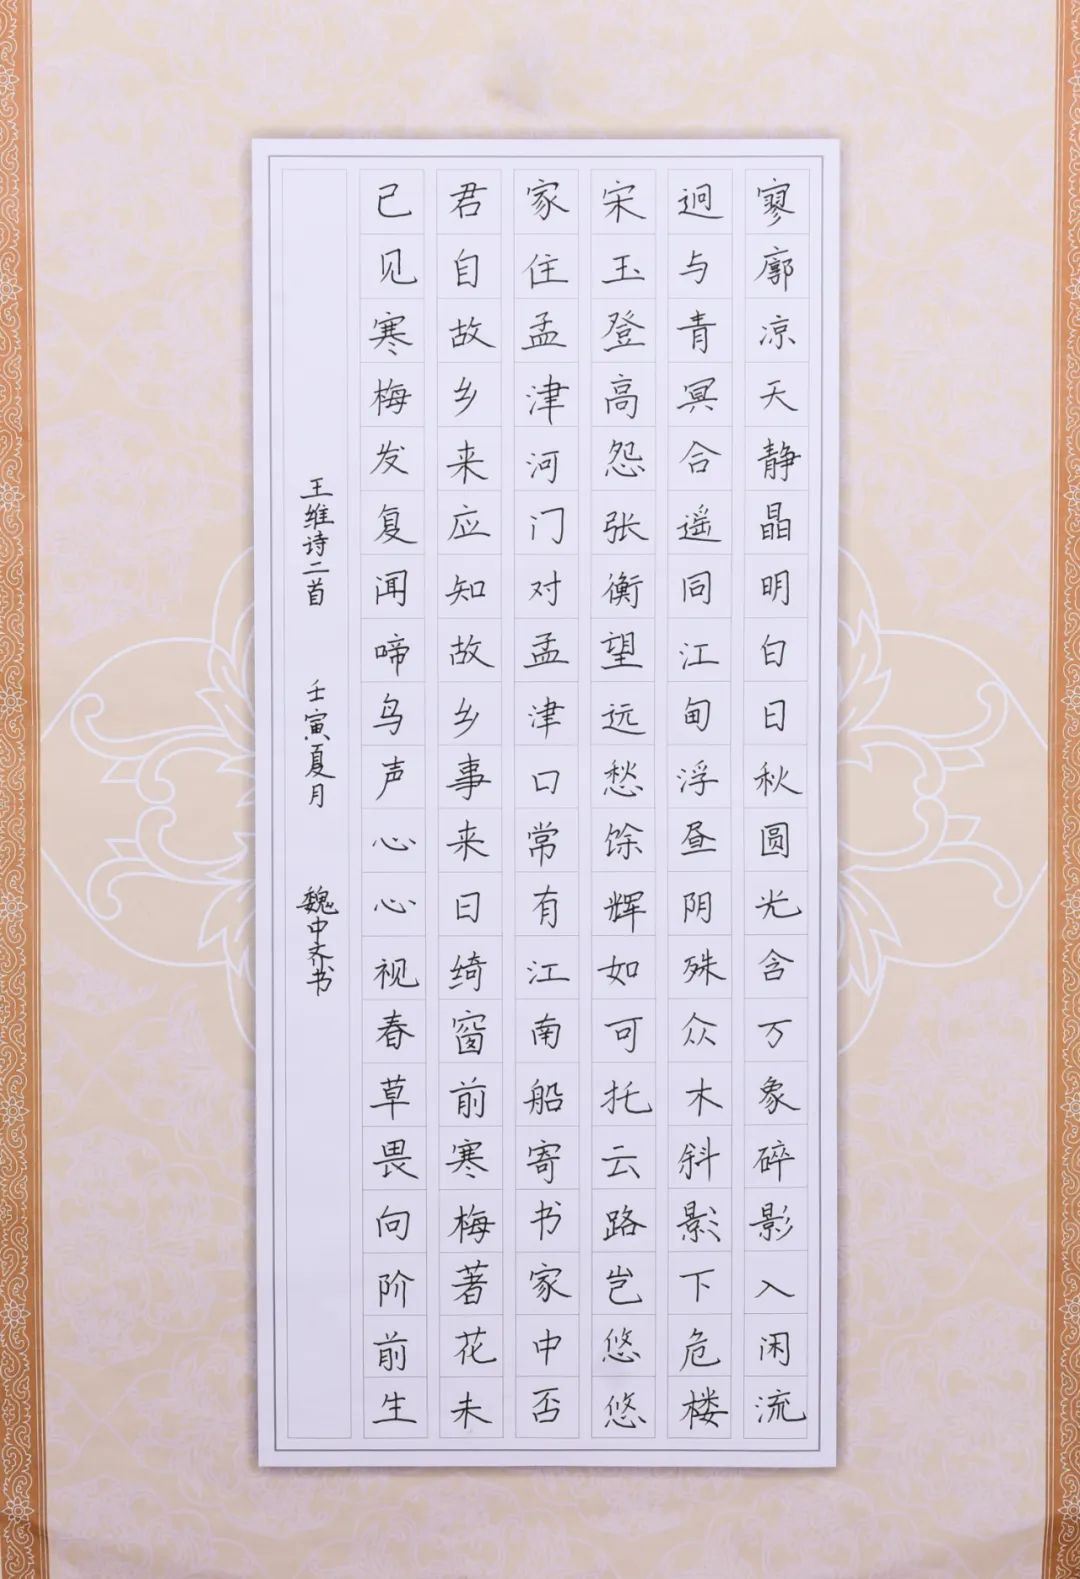 寥廓凉天静晶明白日秋圆光含万象碎影入闲流
迥与青冥合遥同江甸浮昼阴殊众木斜影下危楼
宋玉登高怨张衡望远愁馀辉如可托云路岂悠悠
家住孟津河门对孟津口常有江南船寄书家中否
君自故乡来应知故乡事来日绮窗前寒梅著花未
已见寒梅发复闻啼鸟声心心视春草畏向阶前生
王维诗二首 壬寅夏月 魏中齐书